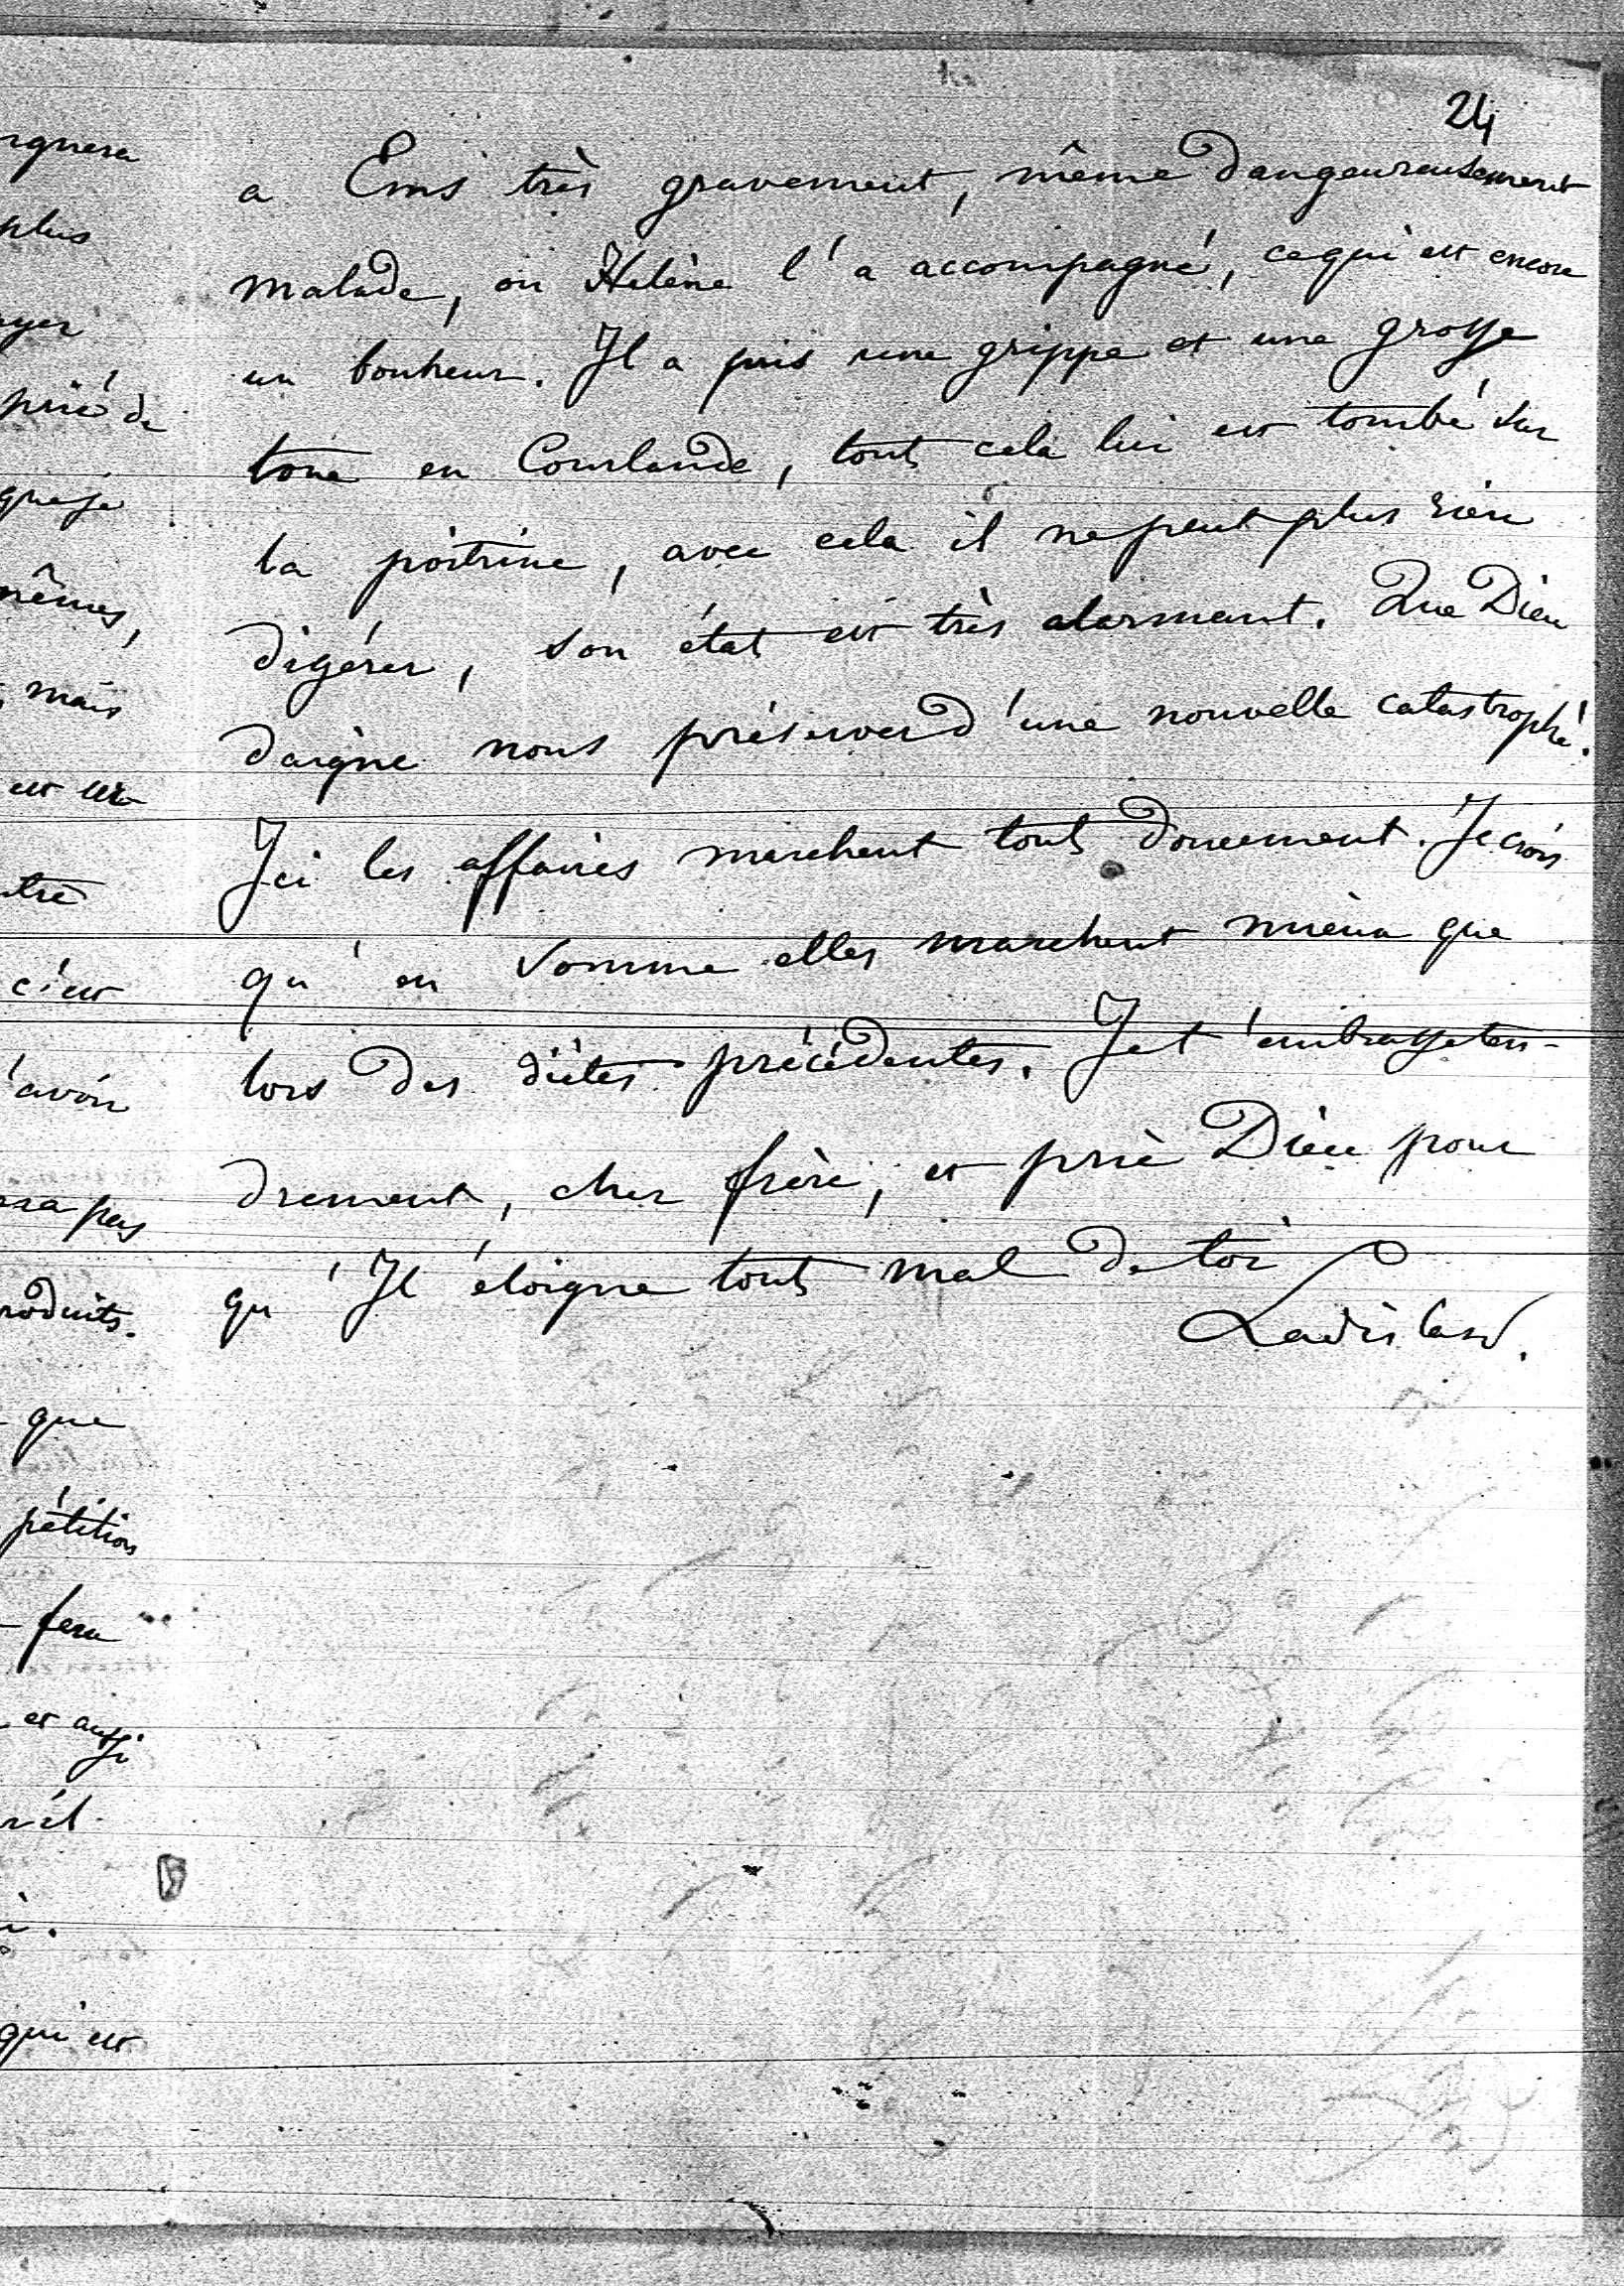 24
a Ems très gravement, même dangeureusement
malade, où Helène l'a accompagné, ce qui est encore
un bonheur. Il a pris une grippe et une grosse
toux en Courlande, tout cela lui est tombé sur
la poitrine, avec cela il ne peut plus rien
digérer, son état est très alarmant. Que Dieu
daigne nous préserver d'une nouvelle catastrophe!
Ici les affaires marchent tout doucement. Je crois
qu'en somme elles marchent mieux que
lors des diètes précédentes. Je t'embrasse ten-
drement, cher frère, et prie Dieu pour
qu'Il éloigne tout mal de toi
Ladislas.
plus
prié de
mêmes,
mais
est un
c'est
avoir
pas
produits.
que
pétition
fera
et aussi
qui est